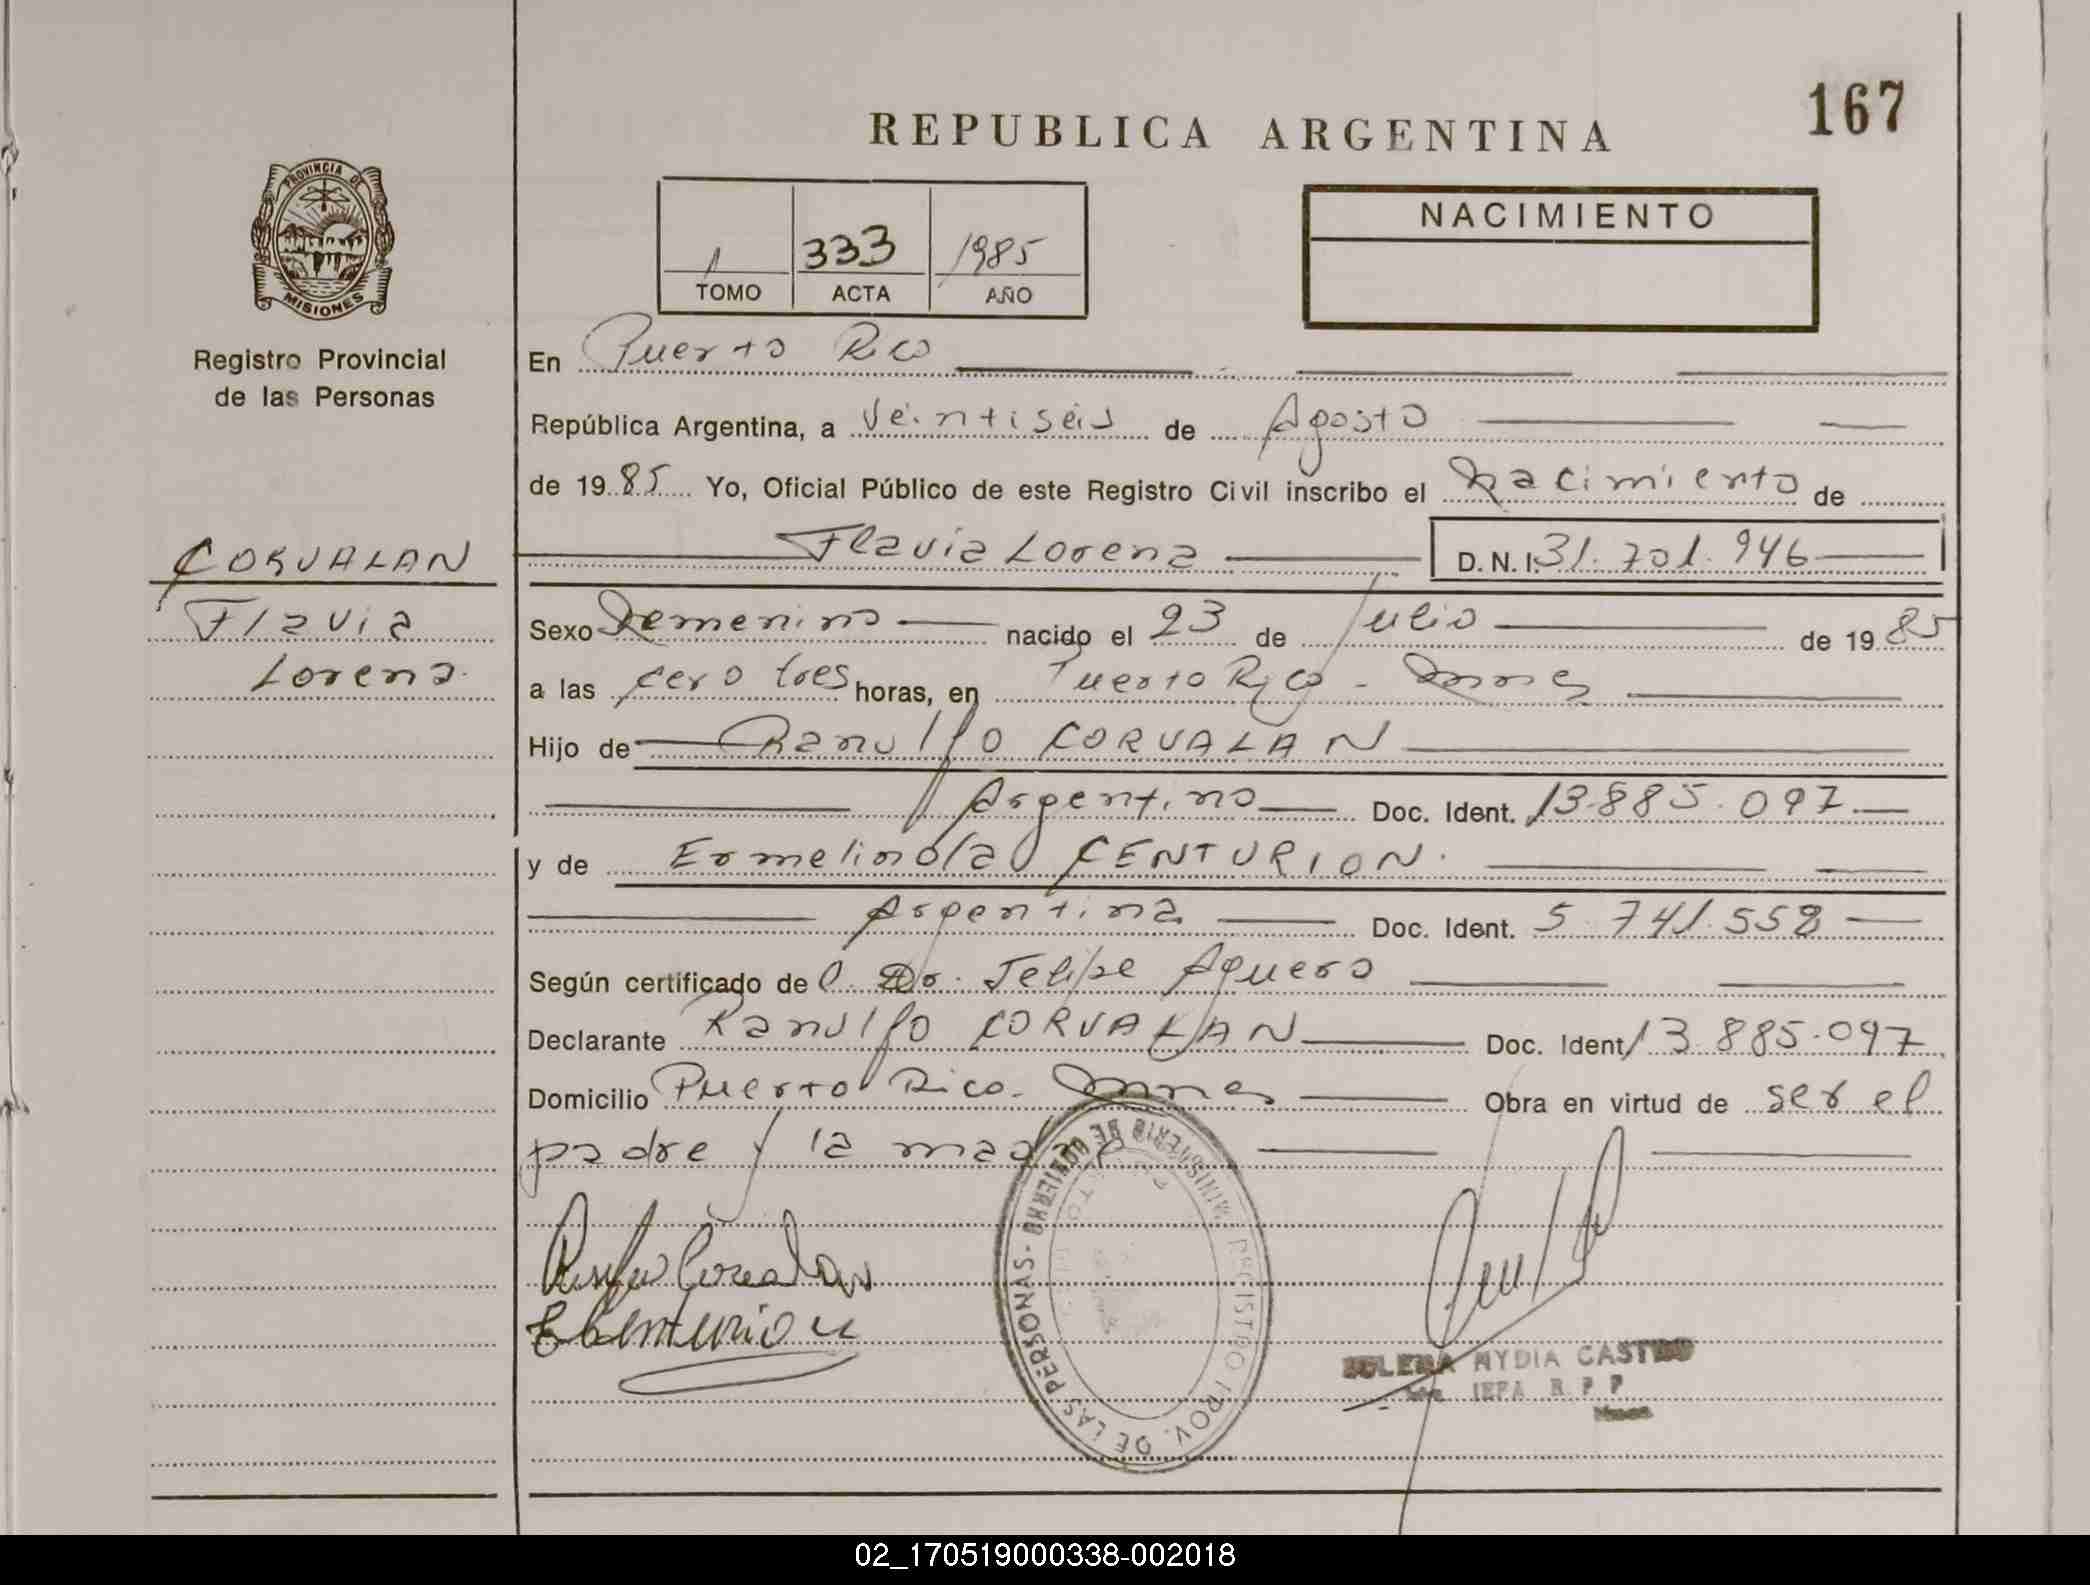 167
REPUBLICA ARGENTINA
PROVINCIA DE
MISIONES
Registro Provincial
de las Personas
1 333 1985
TOMO ACTA AÑO
NACIMIENTO
En Puerto Rico
República Argentina, a veintiseis de Agosto
de 1985 Yo, Oficial Público de este Registro Civil inscribo el Nacimiento de
CORVALAN
Flavia
Lorena
Flavia Lorena D. N. I. 31.701.946
Sexo Femenino nacido el 23 de Julio de 1985
a las cero tres horas, en Puerto Rico - Mnes
Hijo de Ranulfo CORVALAN
Argentino Doc. Ident. 13.885.097
y de Ermelinda CENTURION
Argentina Doc. Ident. 5.741.558
Según certificado de l. Dr. Felipe Aguero
Declarante Ranulfo CORVALAN Doc. Ident 13.885.097
Domicilio Puerto Rico - Mnes Obra en virtud de ser el
padre y la madre
Corvalan
E Centurion
MINISTERIO DE GOBIERNO - REGISTRO PROV. DE LAS PERSONAS
NYDIA CASTRO
R. P. P
02_170519000338-002018